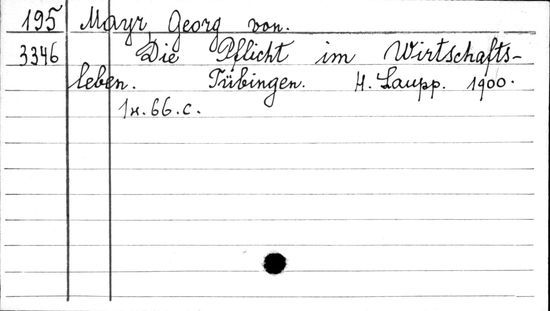 195 Mayr, Georg von.
3346 Die Pflicht im Wirtschafts-
leben. Tübingen. H. Laupp. 1900.
1н.66.c.